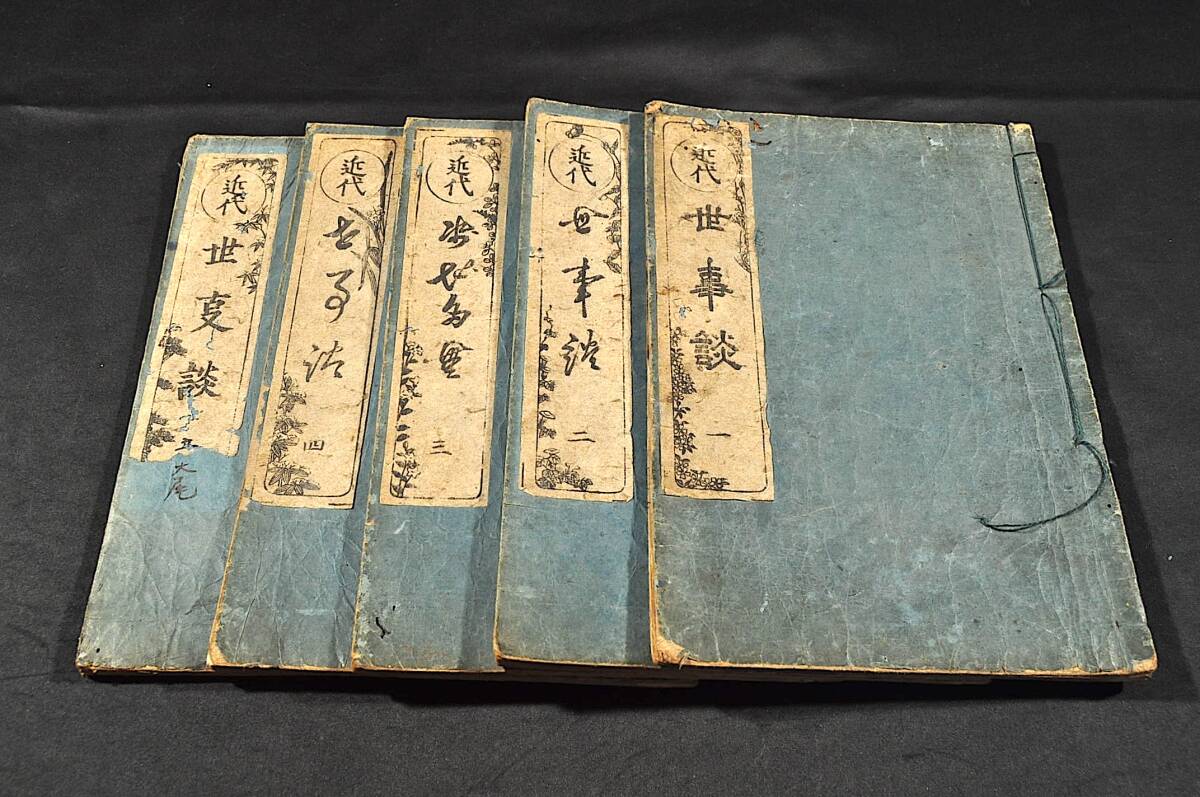 近代
世事談
一
近代
世事談
二
近代
三
近代
世事談
四
近代
世叓談
五大尾